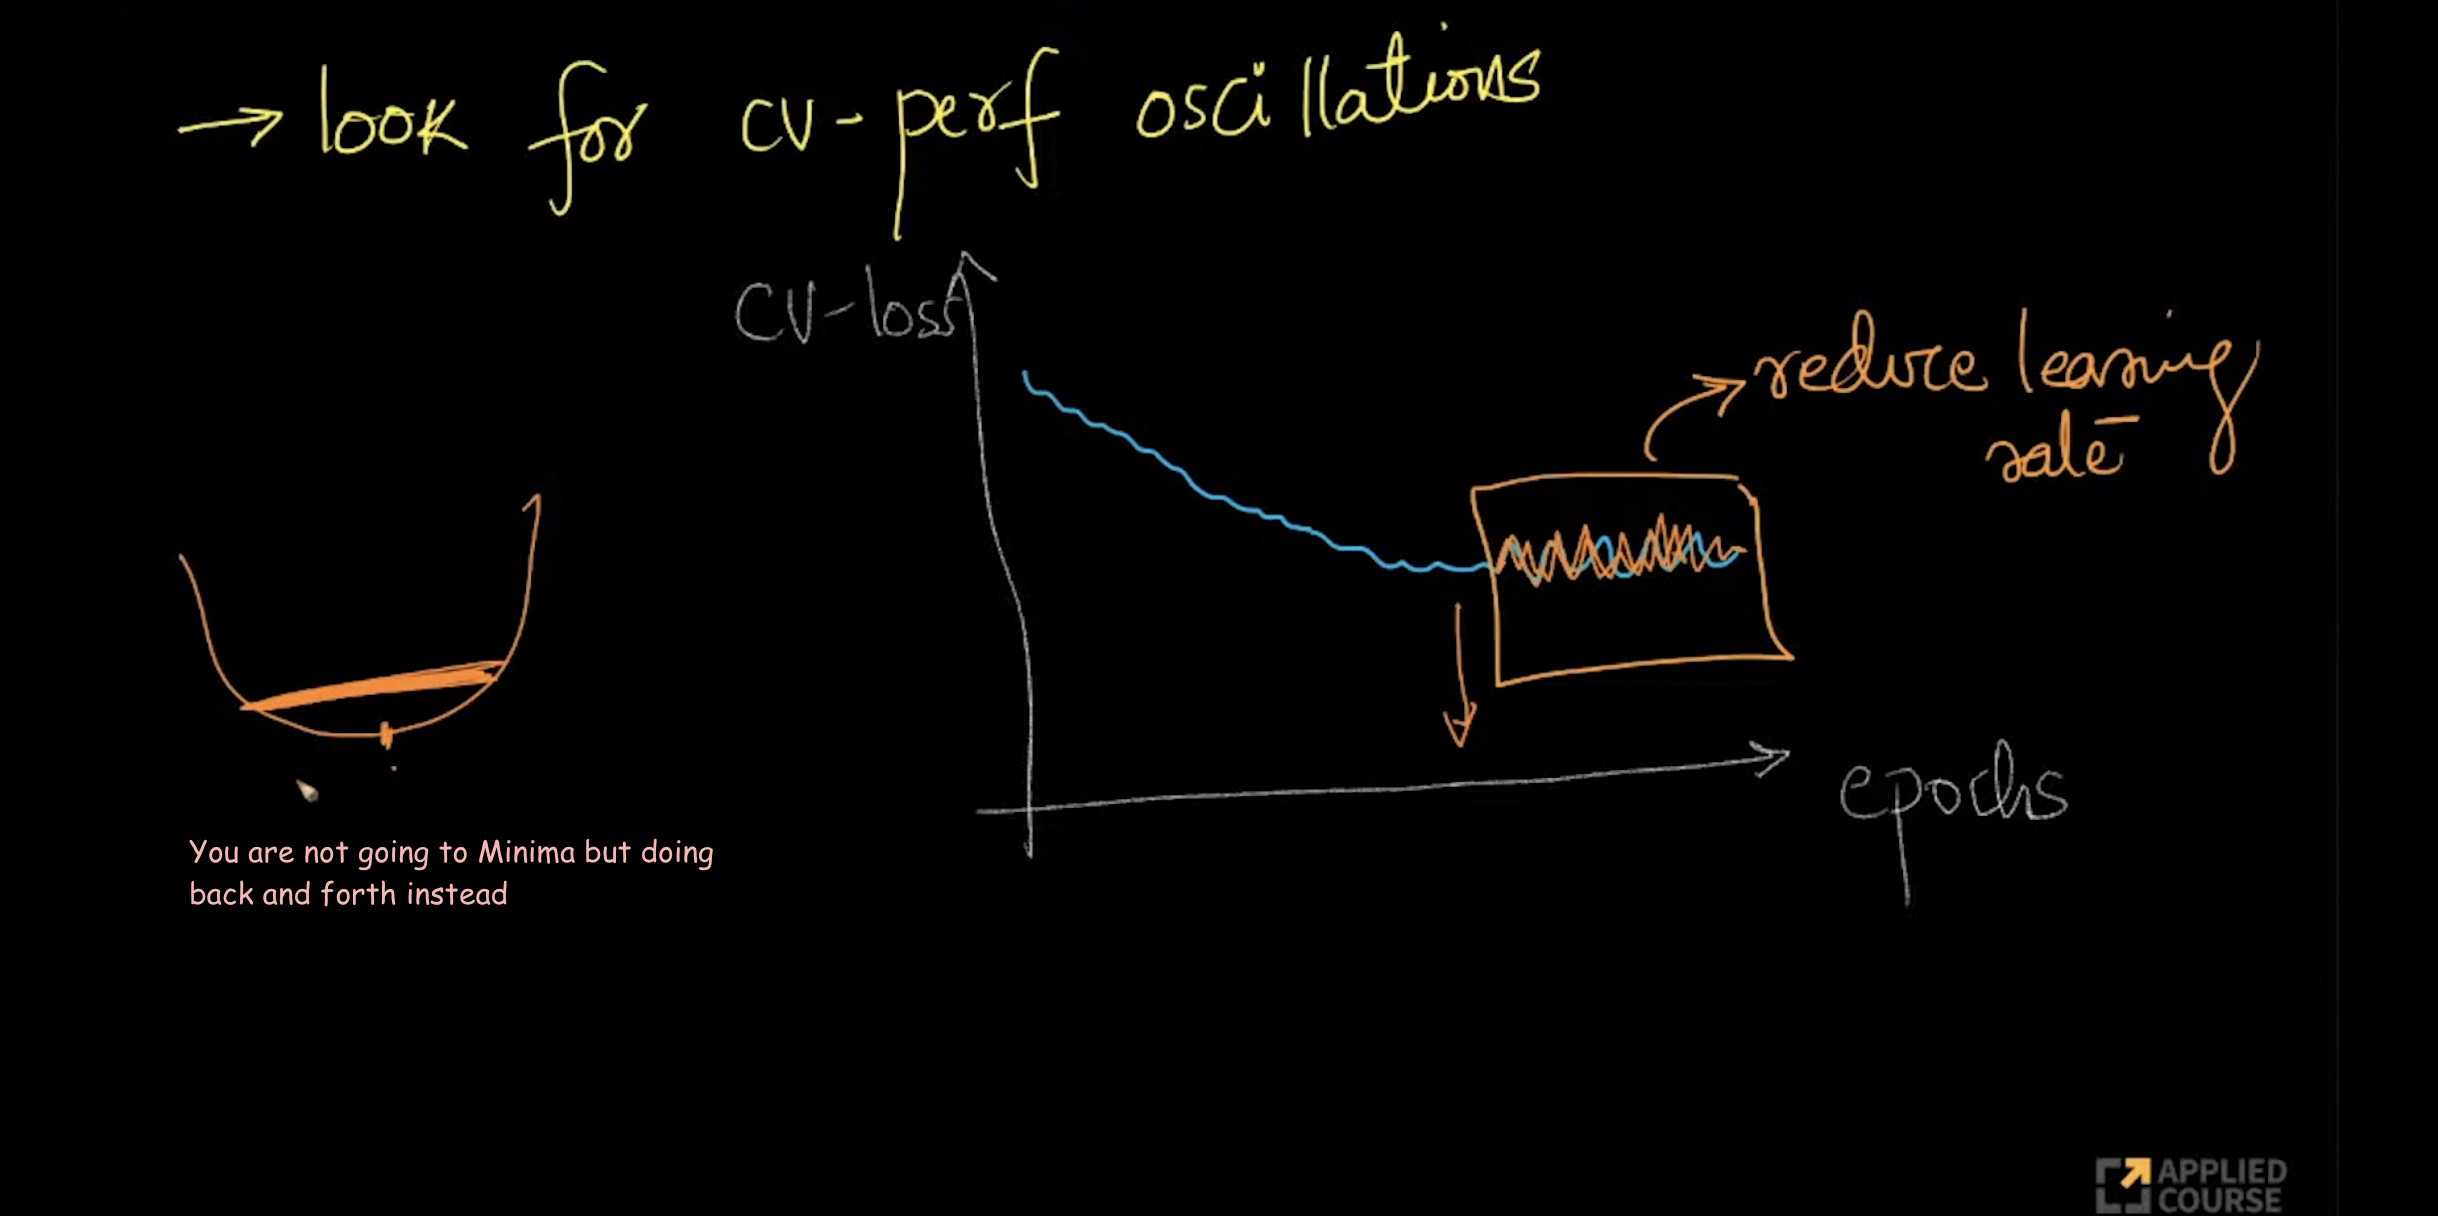 → look for cv-perf oscillations
CV-loss
reduce learning
rate
epochs
You are not going to Minima but doing
back and forth instead
APPLIED
COURSE